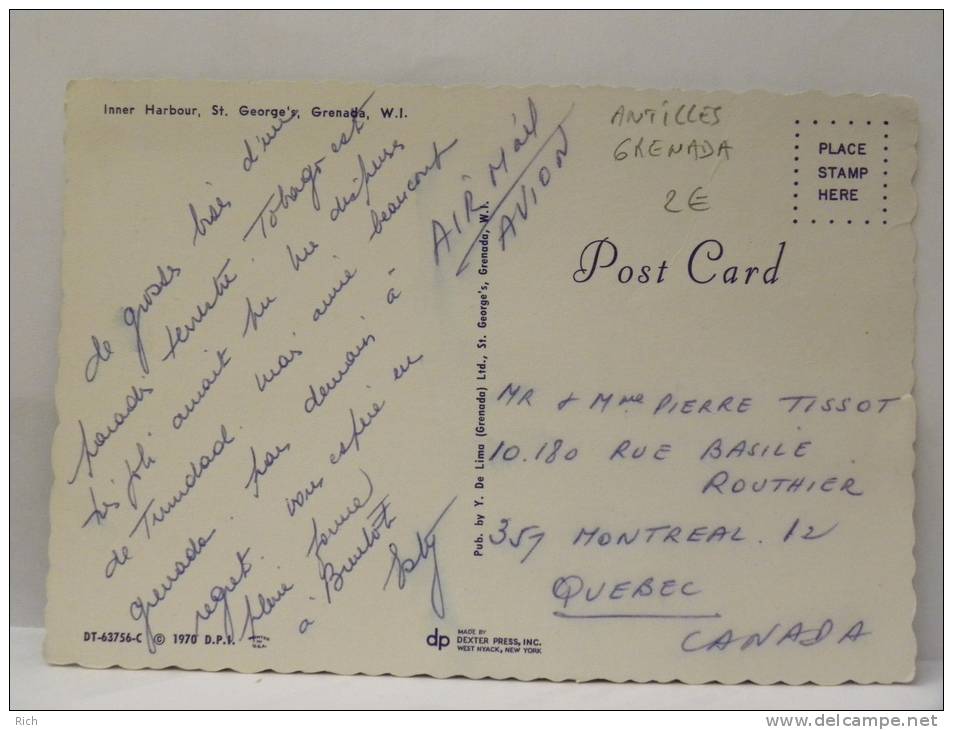 Inner Harbour, St. George's, Grenada, W.I.
de grosses bises d'un
paradis terrestre. Tobago est
très joli aurait pu me
de Trinidad. mais aime beaucoup
grenada. pars demain à
regret. vous espère en
pleine forme
à Bientôt
AIR MAIL
AVION
ANTILLES
GRENADA
2E
PLACE
STAMP
HERE
Post Card
Pub. by Y. De Lima (Grenada) Ltd., St. George's, Grenada, W.I.
MR & Mme PIERRE TISSOT
10.180 RUE BASILE
ROUTHIER
357 MONTREAL. 12
QUEBEC
CANADA
DT-63756-C © 1970 D.P.I.
dp
MADE BY
DEXTER PRESS, INC.
WEST NYACK, NEW YORK
Rich
www.delcampe.net